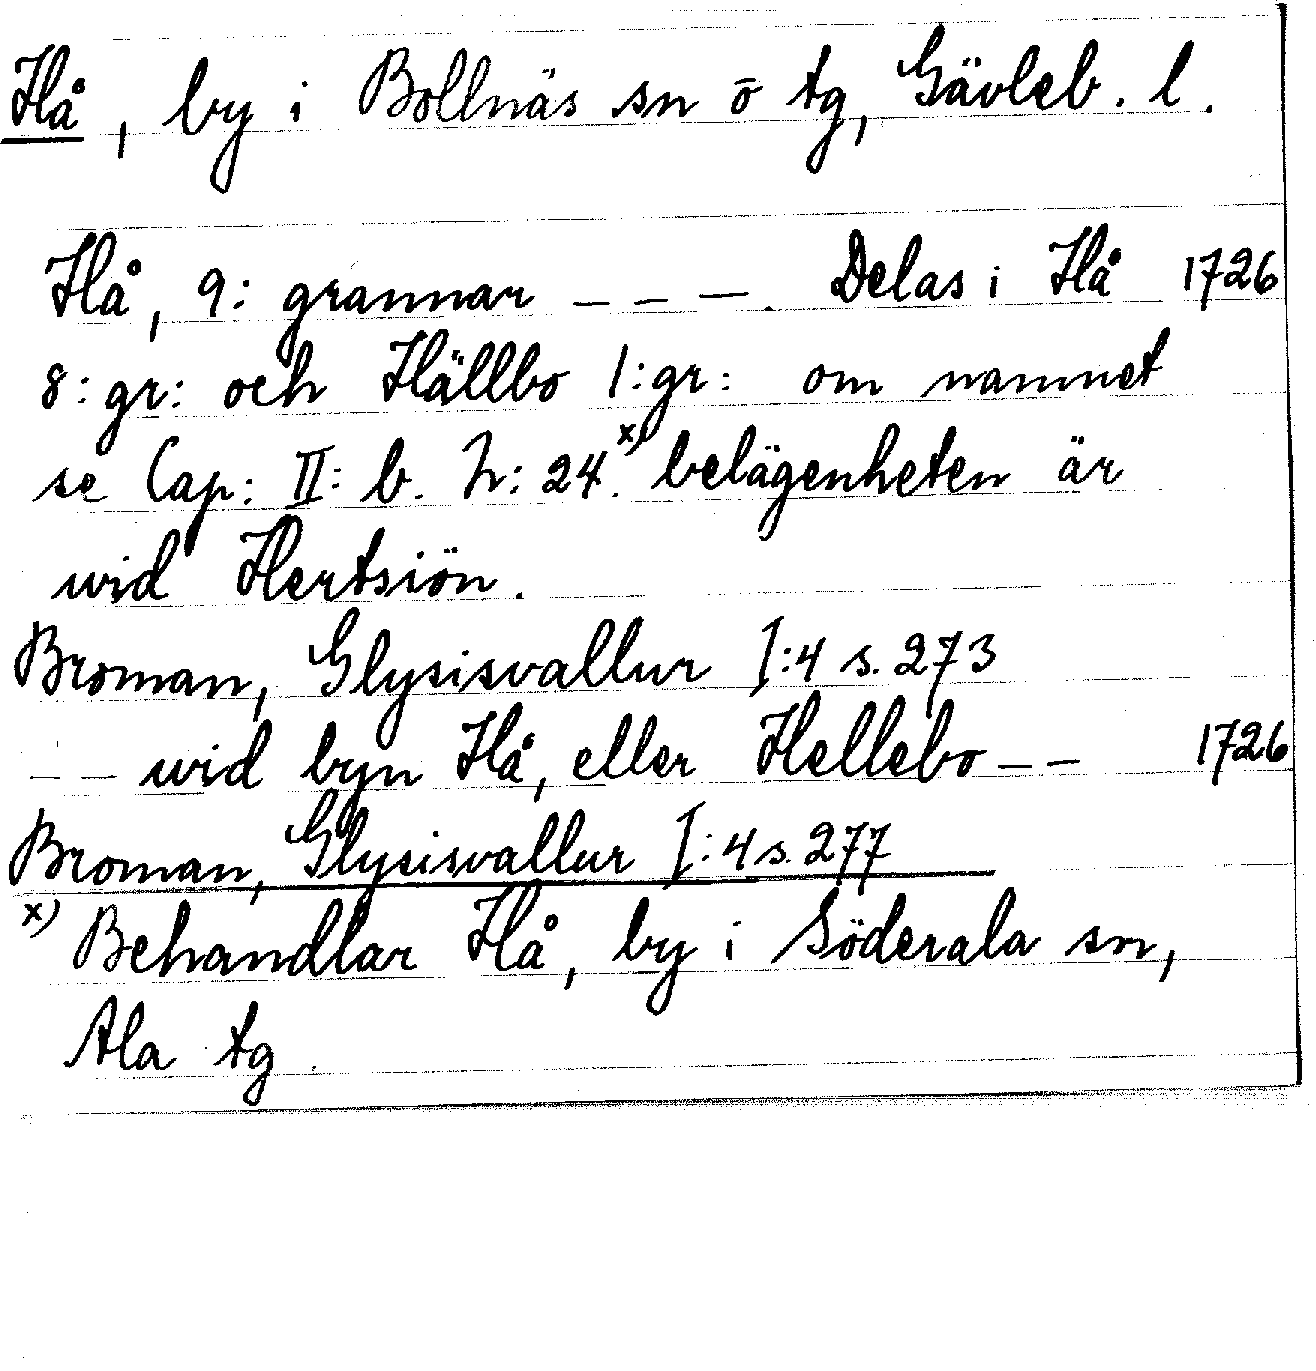 Hå, by i Bollnäs sn o tg, Gävleb. l.
Hå, 9: grannar – – –. Delas i Hå 1726
8: gr: och Hällbo 1: gr: om namnet
se Cap: II: b. h: 24.x) belägenheten är
wid Hertsiön.
Broman, Glysisvallur I:4 s. 273
– – wid byn Hå, eller Hellebo – – 1726
Broman, Glysisvallur I:4 s. 277
x) Behandlar Hå, by i Söderala sn,
Ala tg.